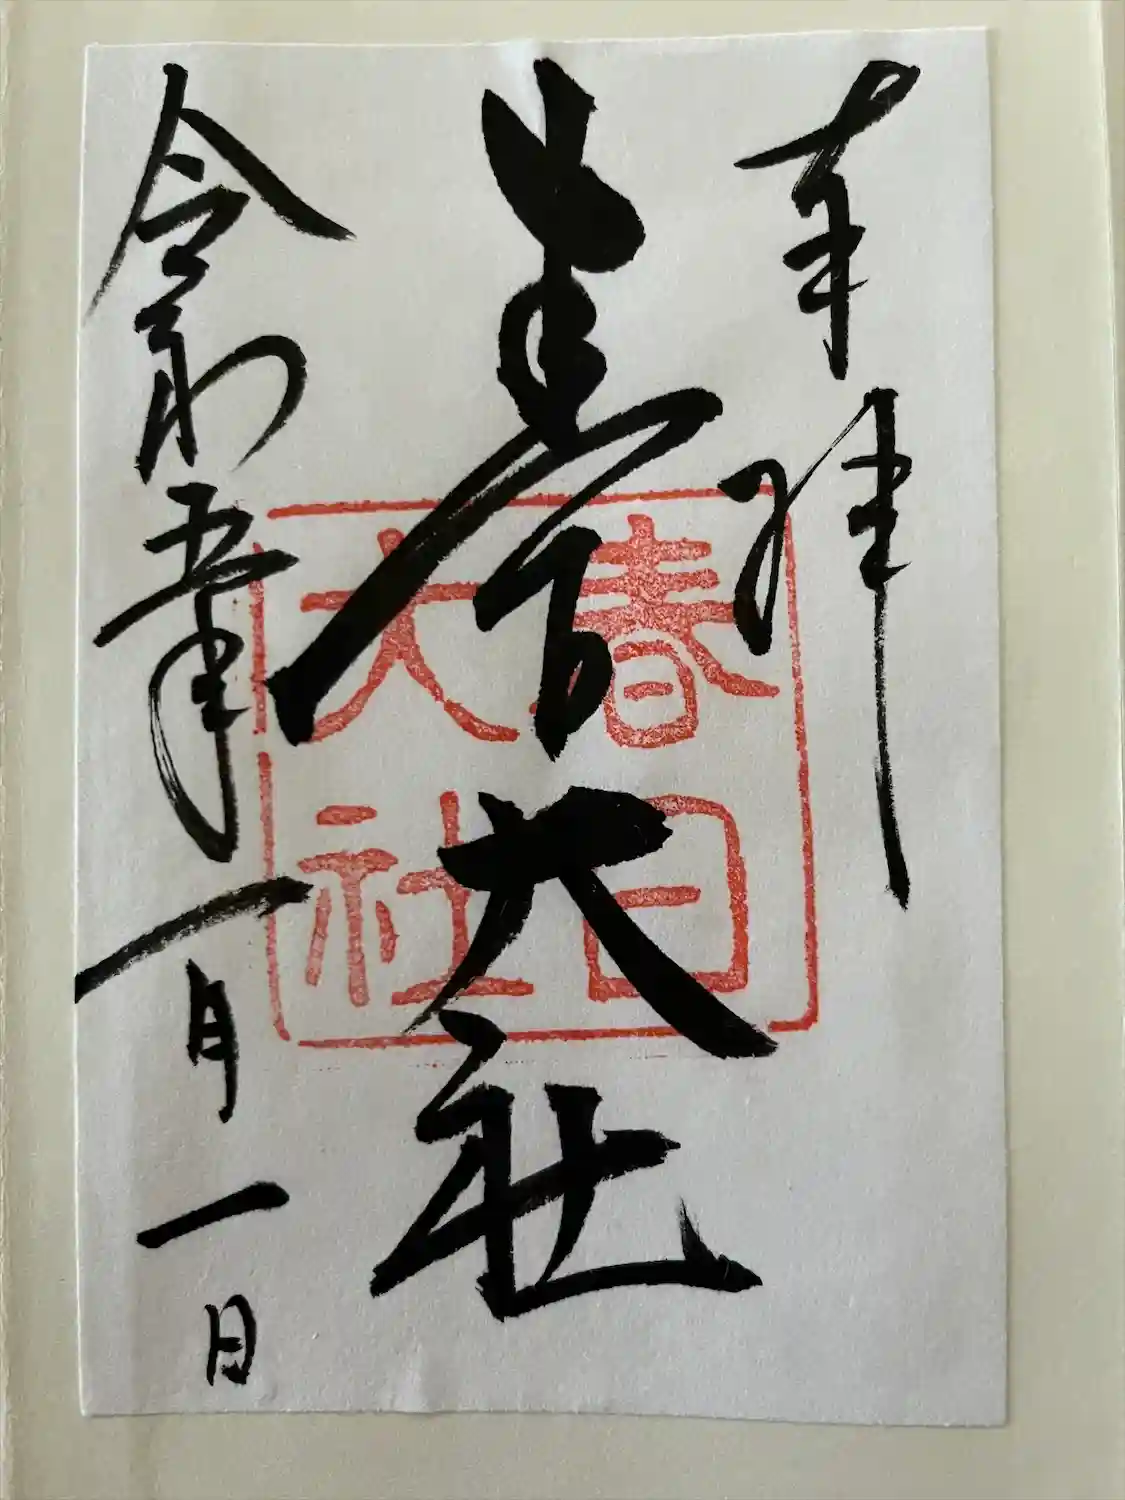 奉拝
春日大社
令和五年一月一日
春日
大社